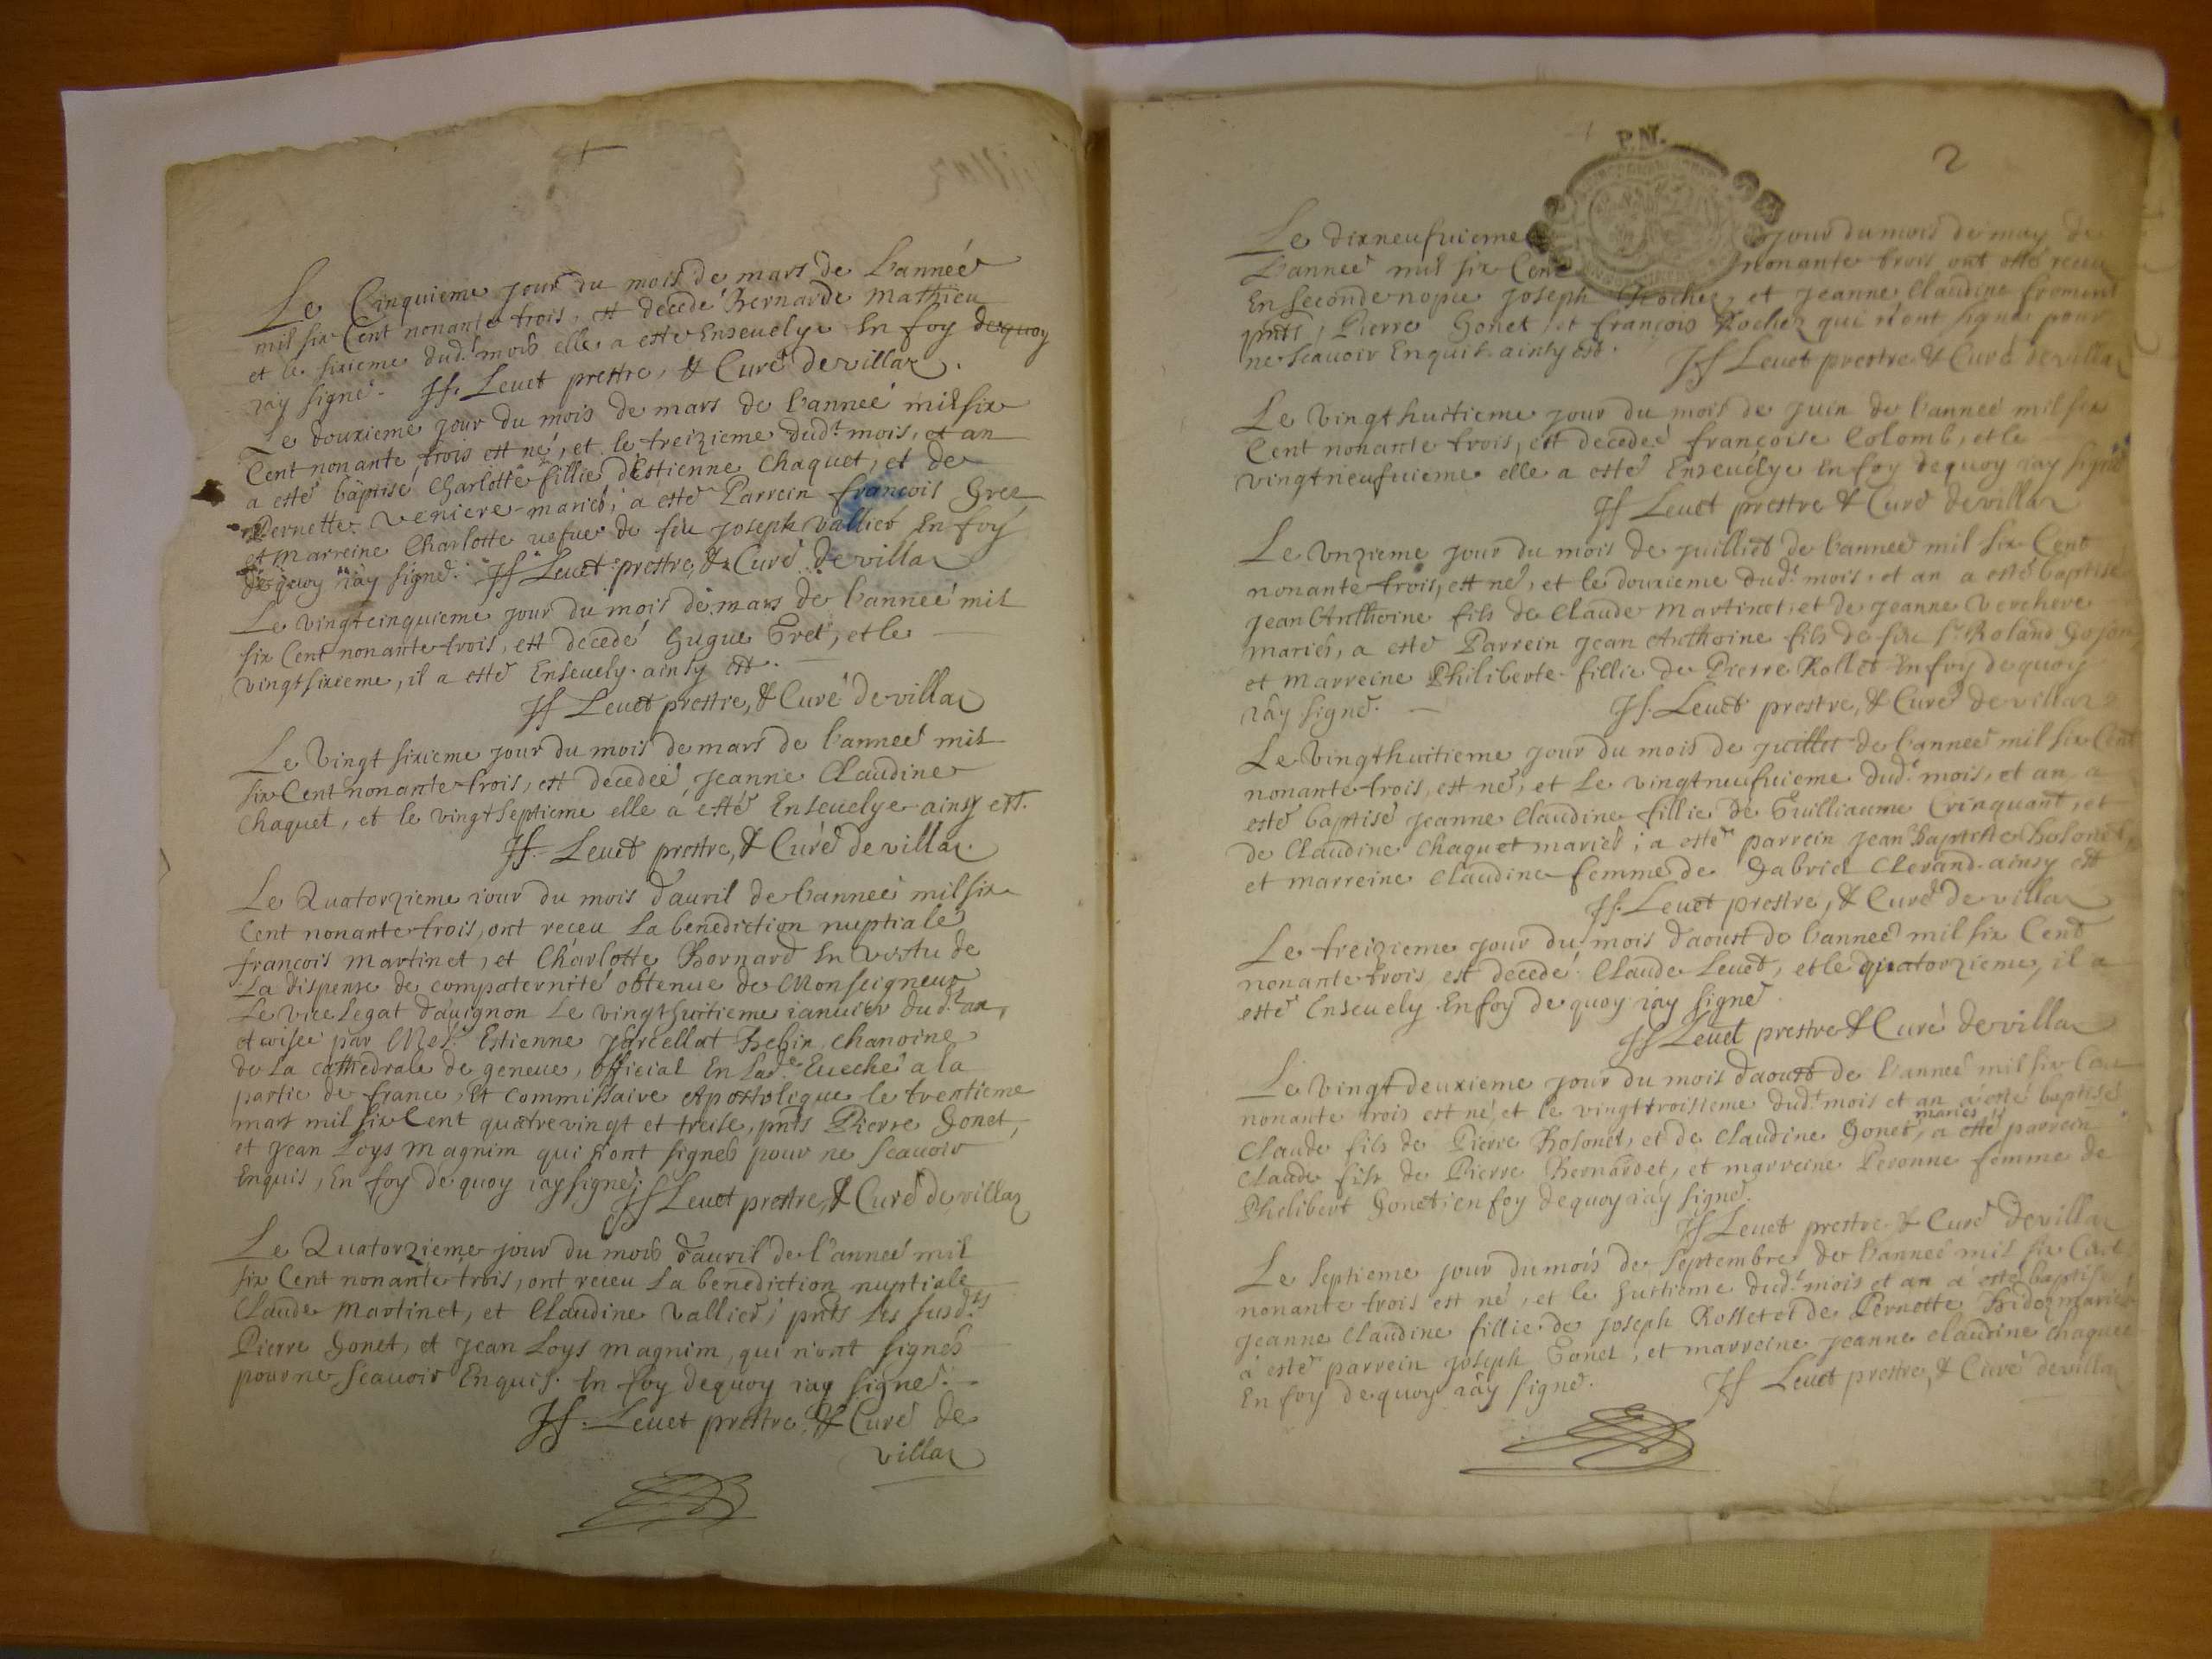 Le Cinquieme jour du mois de mars de l'anneé
mil six Cent nonante trois, est decedé Bernarde Mathieu
et le sixieme dud.t mois elle a esté Ensevelye En foy dequoy
j'ay signé. Jf. Levet prestre, & Curé devillaz.
Le douxieme jour du mois de mars de l'anneé mil six
Cent nonante trois est né, et le treizieme dud.t mois, et an
a esté baptisé Charlotte fillie d'Estienne Chaquet, et de
Pernette Veniere mariés; a esté Parrein françois Grez
et Marreine Charlotte vefue de feu joseph Valliet En foy
de quoy j'ay signé. Jf Levet prestre, & Curé devillaz
Le vingtcinquieme jour du mois de mars de l'anneé mil
six Cent nonante trois, est decedé Gugue Tret, et le
vingtsixieme, il a esté Ensevely ainsy est.
Jf Levet prestre, & Curé devillaz
Le Vingt sixieme jour du mois de mars de l'anneé mil
six Cent nonante trois, est decedeé, Jeanne Claudine
Chaquet, et le vingtseptieme elle a esté Ensevelye ainsy est.
Jf. Levet prestre, & Curé devillaz.
Le Quatorzieme jour du mois d'avril de l'anneé mil six
Cent nonante trois, ont receu La benediction nuptiale
françois Martinet, et Charlotte Bornard En vertu de
La dispense de compaternité obtenue de Monseigneur
Le vice Legat d'avignon Le vingthuitieme ianuier dud.t an,
et visée par Mes.r Estienne Jarcellat Bebin Chanoine
de La Cathedrale de geneve, Official En Lad.e Eueché a la
partie de france, Et Commissaire Apostolique le trentieme
mars mil six Cent quatrevingt et treise, pnts Pierre Gonet,
et Jean Loys Magnim qui n'ont signés pour ne scavoir
Enquis, En foy de quoy j'ay signé. Jf Levet prestre, & Curé devillaz
Le Quatorzieme jour du mois d'avril de l'anneé mil
six Cent nonante trois, ont receu La benediction nuptiale
Claude Martinet, et Claudine Valliet; pnts Les susd.ts
Pierre Gonet, et Jean Loys Magnim, qui n'ont signés
pour ne scavoir Enquis. En foy dequoy j'ay signé.
Jf. Levet prestre, & Curé de
villaz
P.N.
2
Le dixneufvieme jour du mois de may de
L'anneé mil six Cent nonante trois ont esté receu
En seconde nopce Joseph Rochez, et Jeanne Claudine froment
pnts, Pierre Gonet, et françois Rochez qui n'ont signé pour
ne scavoir Enquis ainsy est. Jf Levet prestre & Curé devillaz
Le Vingthuitieme jour du mois de Juin de l'anneé mil six
Cent nonante trois, est decedeé françoise Colomb, et le
vingtneufvieme elle a esté Ensevelye En foy dequoy j'ay signé
Jf Levet prestre & Curé devillaz
Le Vnzieme jour du mois de juilliet de l'anneé mil six Cent
nonante trois, est né, et le douxieme dud.t mois, et an a esté baptisé
Jean Anthoine fils de Claude Martinet, et de Jeanne Verchere
mariés, a esté Parrein Jean Anthoine fils de feu S.r Roland Gojon,
et Marreine Philiberte fillie de Pierre Rollet En foy dequoy
j'ay signé. Jf. Levet prestre, & Curé devillaz
Le Vingthuitieme jour du mois de juillet de l'anneé mil six Cent
nonante trois, est né, et Le vingtneufvieme dud.t mois, et an a
esté baptisé Jeanne Claudine fillie de Guilliaume Crinquant, et
de Claudine Chaquet mariés; a esté parrein Jean Baptiste Bolonet,
et marreine Claudine femme de Gabriel Clerand. ainsy est
Jf. Levet prestre, & Curé devillaz
Le treizieme jour du mois d'aoust de l'anneé mil six Cent
nonante trois, est decedé Claude Levet, et le quatorzieme, il a
esté Ensevely En foy de quoy j'ay signé.
Jf Levet prestre & Curé devillaz
Le vingtdeuxieme jour du mois d'aoust de l'anneé mil six Cen
nonante trois est né, et le vingttroisieme dud.t mois et an a esté baptisé
Claude fils de Pierre Bolonet, et de Claudine Gonet, mariés a esté parrein
Claude fils de Pierre Bernardet, et marreine Peronne femme de
Philibert Gonet; en foy dequoy j'ay signé.
Jf Levet prestre & Curé devillaz
Le Septieme jour du mois de Septembre de l'anneé mil six Cent
nonante trois est né, et le huitieme dud.t mois et an a esté baptisé
Jeanne Claudine fillie de Joseph Rosset et de Pernette Bidoz mariés
a esté parrein joseph Gonet, et marreine Jeanne Claudine Chaquet
En foy dequoy j'ay signé. Jf Levet prestre, & Curé devillaz